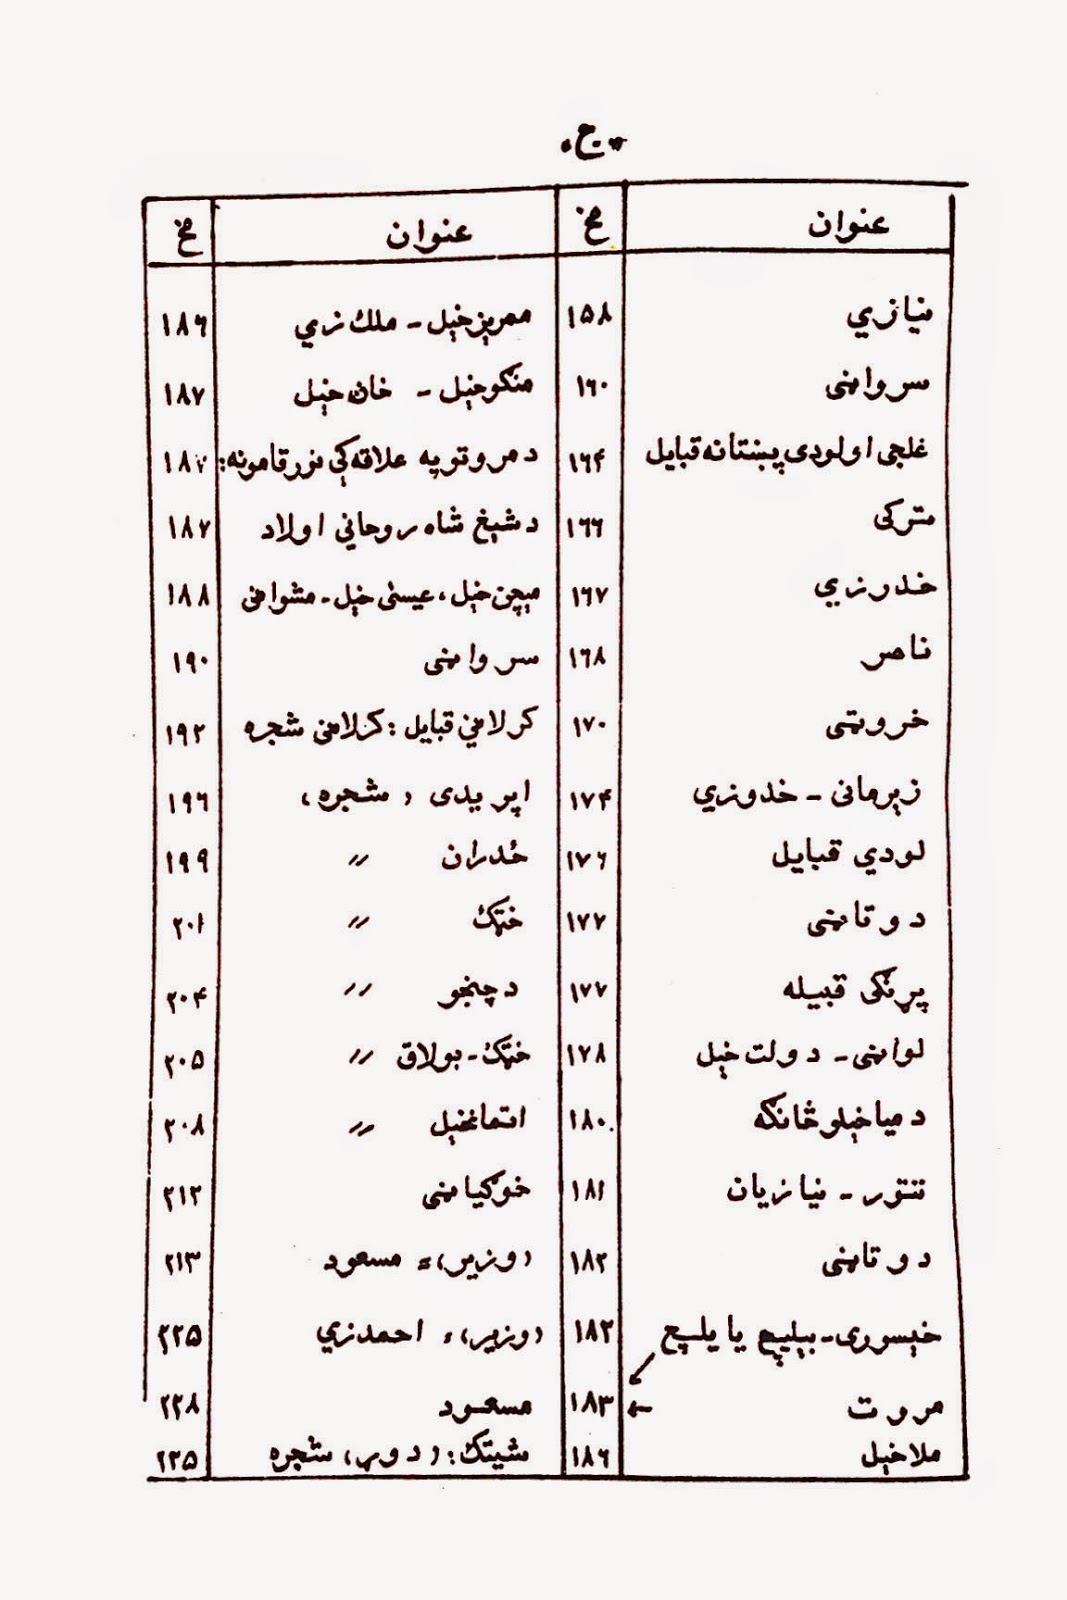 «ج»
عنوان مخ عنوان مخ
نيازي ۱۵۸ ممريزخېل - ملک زي ۱۸۶
سرواني ۱۶۰ منکوخېل - خان خېل ۱۸۷
غلجی او لودی پښتانه قبايل ۱۶۴ د مروتو په علاقه کې نور قامونه: ۱۸۷
ترکی ۱۶۶ د شيخ شاه روحاني اولاد ۱۸۷
خدرزي ۱۶۷ مېچن خېل، عيسیٰ خېل - مشواڼی ۱۸۸
ناصر ۱۶۸ سرواڼی ۱۹۰
خروټی ۱۷۰ کرلاڼي قبايل: کرلاڼی شجره ۱۹۲
زېرمانی - خدوزي ۱۷۴ اپريدی (شجره) ۱۹۶
لودي قبايل ۱۷۶ ځدران 〃 ۱۹۹
دوتاڼی ۱۷۷ خټک 〃 ۲۰۱
پړنکی قبيله ۱۷۷ د چنجو 〃 ۲۰۴
لواڼی - دولت خېل ۱۷۸ خټک - بولاق 〃 ۲۰۵
د مياخېلو څانګه ۱۸۰ اتمانخېل 〃 ۲۰۸
تتور - نيازيان ۱۸۱ خوګياڼی ۲۱۲
دوتاڼی ۱۸۲ (وزير) = مسعود ۲۱۳
خېسوری - بېليچ يا يلسېچ ۱۸۲ (وزير) = احمدزي ۲۲۵
مروت ۱۸۳ مسعود ۲۲۸
ملاخېل ۱۸۶ شيتک: (دوړ) شجره ۲۳۵